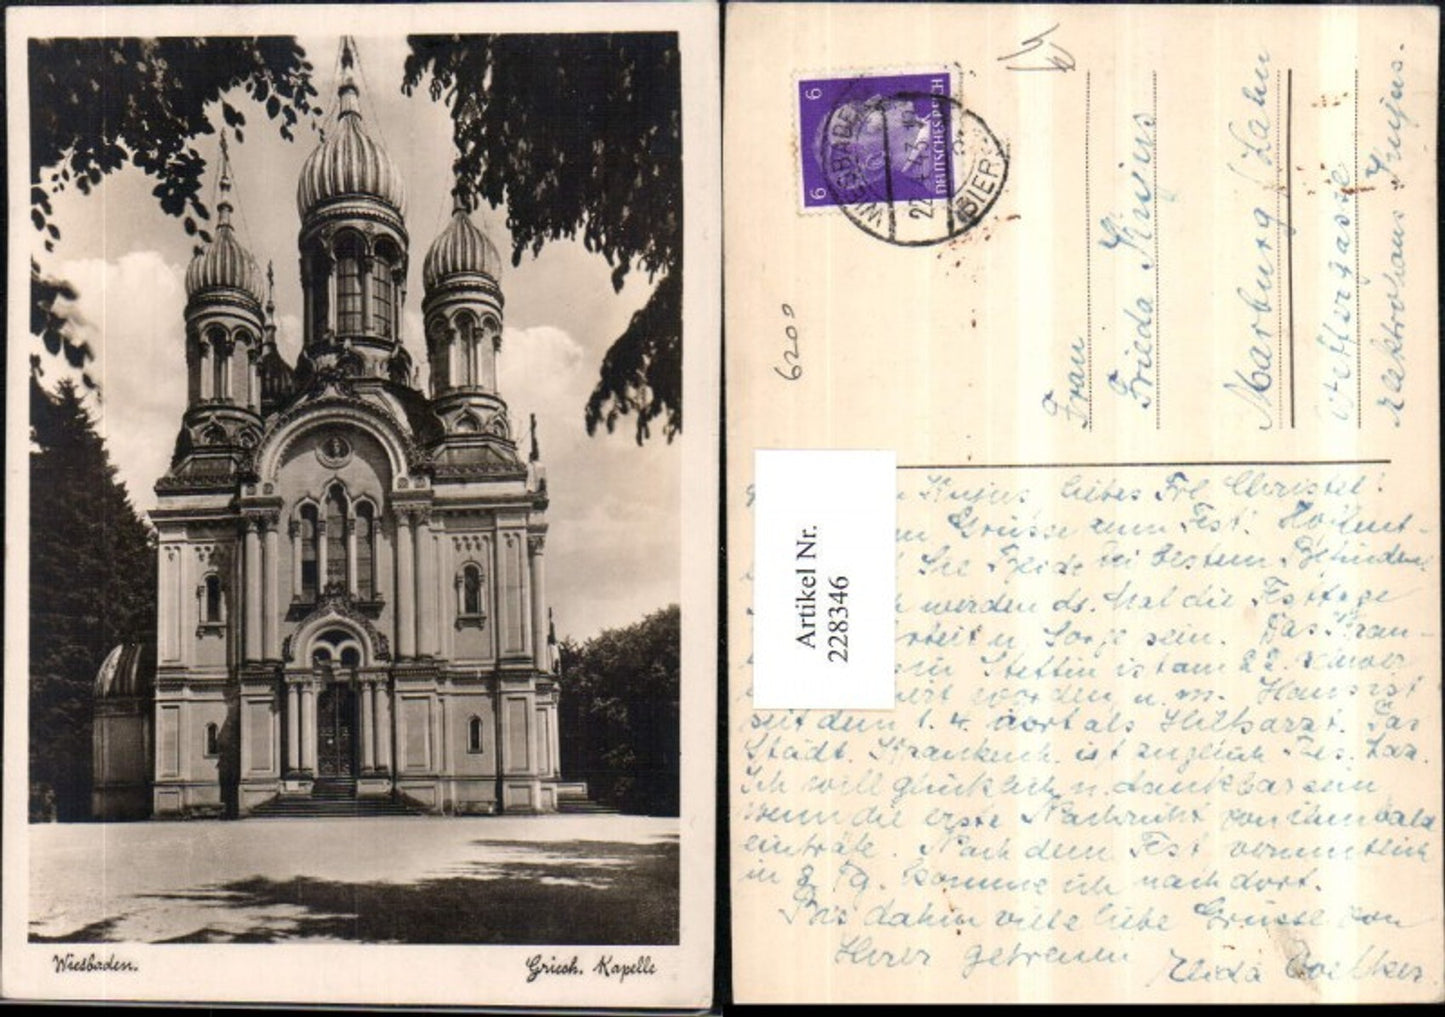 Wiesbaden.
Griech. Kapelle
6
6
DEUTSCHES REICH
WIESBADEN
22.4.43
6200
Frau
Frieda Krujus
Marburg / Lahn
Wettergasse
Elektrohaus Krujus.
Artikel Nr.
228346
Krujus liebes Frl Christel!
Grüsse zum Fest! Hoffent-
Sie Beide bei bestem Befinden
werden ds. Mal die Festtage
Arbeit u Sorge sein. Das Kran-
in Stettin ist am 22. schwer
worden u. m. Hans ist
seit dem 1.4. dort als Hilfsarzt. Das
Städt. Krankenh. ist zugleich Res. Laz.
Ich will glücklich u. dankbar sein
wenn die erste Nachricht von ihm bald
einträfe. Nach dem Fest vermutlich
in 8 Tg. komme ich nach dort.
Bis dahin viele liebe Grüsse von
Ihrer getreuen